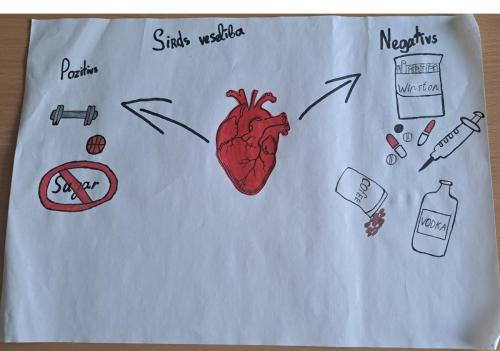 Sirds veselība
Pozitīvs
Negatīvs
Winston
Sugar
COFEE
VODKA